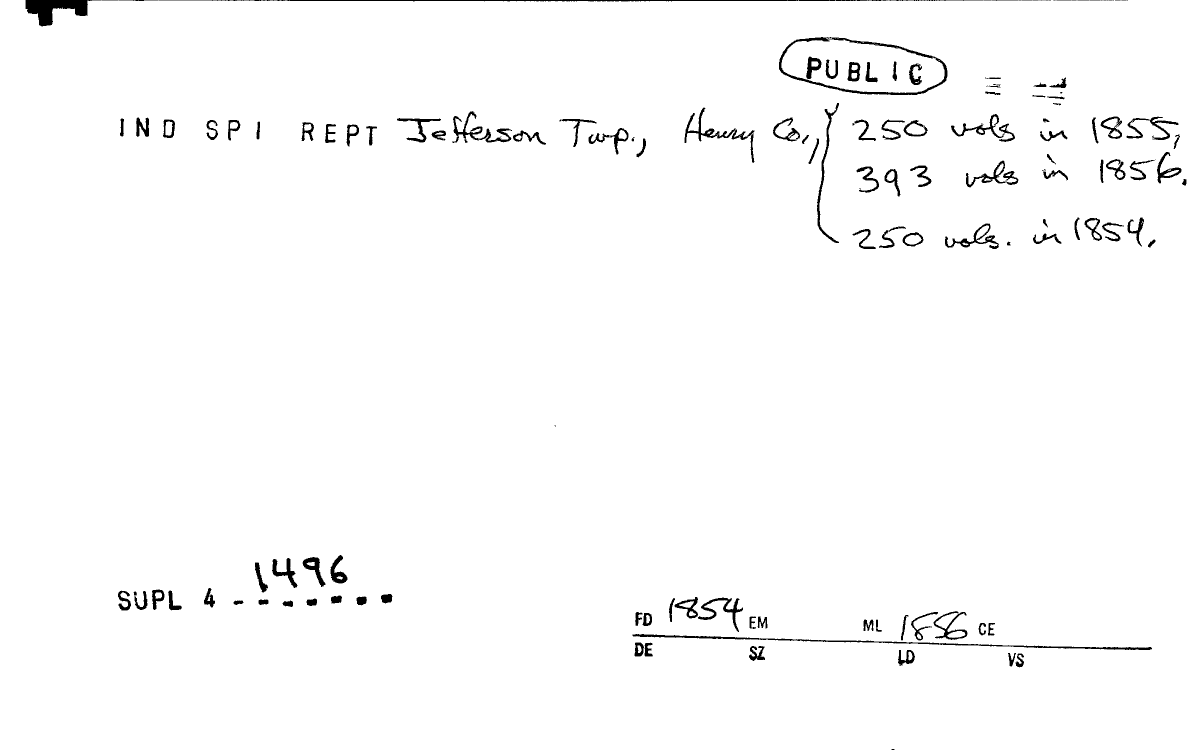 PUBLIC
IND SPI REPT Jefferson Twp., Henry Co., 250 vols in 1855,
393 vols in 1856.
250 vols. in 1854.
1496
SUPL 4 - - - - - - -
FD 1854 EM ML 1856 CE
DE SZ LD VS